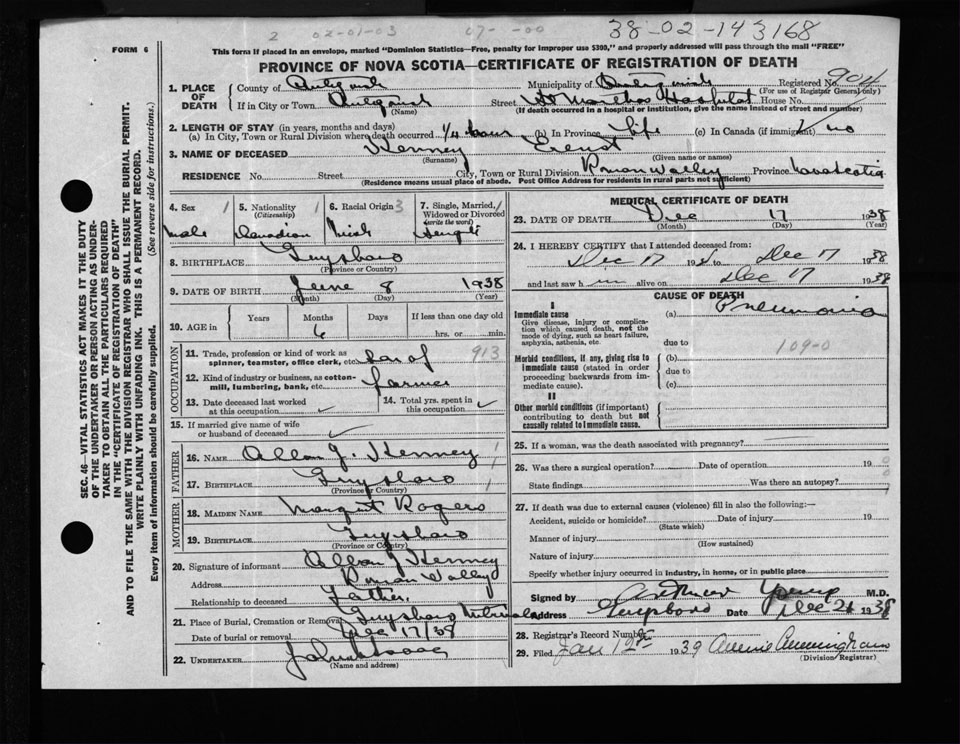 2 02-01-03 07- -00 38-02-143168
FORM 6
This form if placed in an envelope, marked "Dominion Statistics—Free, penalty for improper use $300," and properly addressed will pass through the mail "FREE"
PROVINCE OF NOVA SCOTIA—CERTIFICATE OF REGISTRATION OF DEATH
1. PLACE OF DEATH
County of Antigonish Municipality of Antigonish Registered No. 904
(For use of Registrar General only)
If in City or Town Antigonish Street St Marthas Hospital House No.
(Name) (If death occurred in a hospital or institution, give the name instead of street and number)
2. LENGTH OF STAY (in years, months and days)
(a) In City, Town or Rural Division where death occurred 1/4 hour (b) In Province Life (c) In Canada (if immigrant) no
3. NAME OF DECEASED Kenney Ernst
(Surname) (Given name or names)
RESIDENCE No. Street City, Town or Rural Division Roman Valley Province Nova Scotia
(Residence means usual place of abode. Post Office Address for residents in rural parts not sufficient)
4. Sex 1 Male
5. Nationality 1 (Citizenship) Canadian
6. Racial Origin 3 Irish
7. Single, Married, Widowed or Divorced (write the word) 1 Single
8. BIRTHPLACE Guysboro
(Province or Country)
9. DATE OF BIRTH June 8 1938
(Month) (Day) (Year)
10. AGE in Years Months Days If less than one day old
6 hrs. or min.
OCCUPATION
11. Trade, profession or kind of work as spinner, teamster, office clerk, etc. son of 913
12. Kind of industry or business, as cotton-mill, lumbering, bank, etc. farmer
13. Date deceased last worked at this occupation ✓
14. Total yrs. spent in this occupation ✓
15. If married give name of wife or husband of deceased ✓
FATHER
16. NAME Allan J. Kenney 1
17. BIRTHPLACE Guysboro 1
(Province or Country)
MOTHER
18. MAIDEN NAME Margret Rogers
19. BIRTHPLACE Guysboro
(Province or Country)
20. Signature of informant Allan J Kenney
Address Roman Valley
Relationship to deceased Father.
21. Place of Burial, Cremation or Removal Guysboro Intervale
Date of burial or removal Dec 17/38
22. UNDERTAKER John Isaac
(Name and address)
MEDICAL CERTIFICATE OF DEATH
23. DATE OF DEATH Dec 17 1938
(Month) (Day) (Year)
24. I HEREBY CERTIFY that I attended deceased from:
Dec 17 19 to Dec 17 1938
and last saw h im alive on Dec 17 1938
CAUSE OF DEATH
I
Immediate cause (a) Pneumonia
Give disease, injury or complication which caused death, not the mode of dying, such as heart failure, asphyxia, asthenia, etc.
due to 109-0
Morbid conditions, if any, giving rise to immediate cause (stated in order proceeding backwards from immediate cause). (b)
due to
(c)
II
Other morbid conditions (if important) contributing to death but not causally related to immediate cause.
25. If a woman, was the death associated with pregnancy?
26. Was there a surgical operation? Date of operation 19
State findings Was there an autopsy?
27. If death was due to external causes (violence) fill in also the following:—
Accident, suicide or homicide? Date of injury 19
(State which)
Manner of injury
(How sustained)
Nature of injury
Specify whether injury occurred in industry, in home, or in public place
Signed by M.D.
Address Guysboro Date Dec 21 1938
28. Registrar's Record Number
29. Filed Jan 12th 1939 Annie Cunningham
(Division Registrar)
SEC. 46—VITAL STATISTICS ACT MAKES IT THE DUTY
OF THE UNDERTAKER OR PERSON ACTING AS UNDER-
TAKER TO OBTAIN ALL THE PARTICULARS REQUIRED
IN THE "CERTIFICATE OF REGISTRATION OF DEATH"
AND TO FILE THE SAME WITH THE DIVISION REGISTRAR WHO SHALL ISSUE THE BURIAL PERMIT.
WRITE PLAINLY WITH UNFADING INK. THIS IS A PERMANENT RECORD.
Every item of information should be carefully supplied. (See reverse side for instructions.)